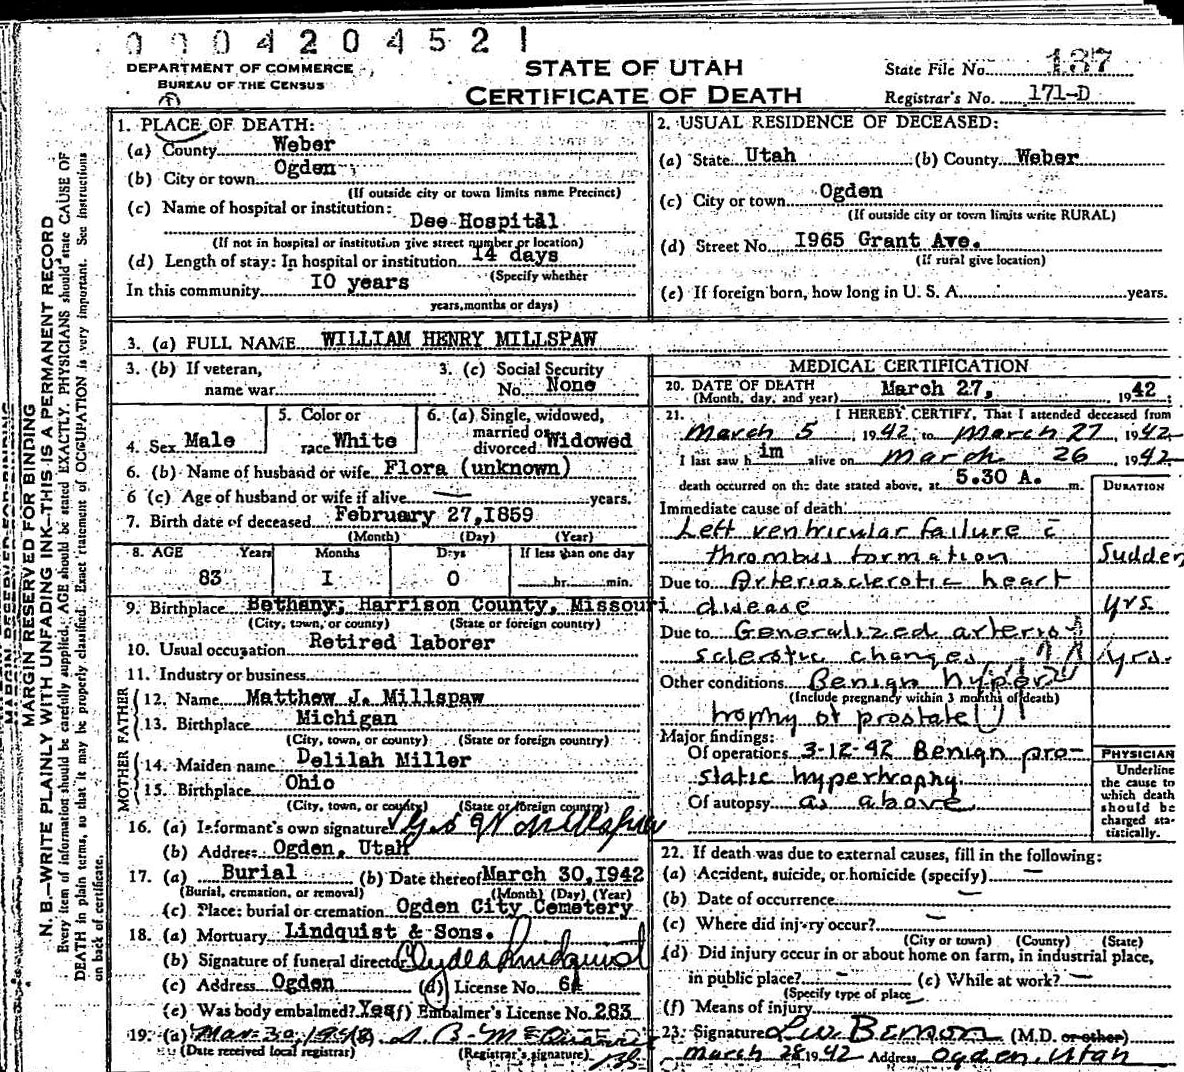 0004204521
DEPARTMENT OF COMMERCE
BUREAU OF THE CENSUS
STATE OF UTAH
CERTIFICATE OF DEATH
State File No. 187
Registrar's No. 171-D
MARGIN RESERVED FOR BINDING
N. B.—WRITE PLAINLY WITH UNFADING INK—THIS IS A PERMANENT RECORD
Every item of information should be carefully supplied. AGE should be stated EXACTLY. PHYSICIANS should state CAUSE OF
DEATH in plain terms, so that it may be properly classified. Exact statement of OCCUPATION is very important. See instructions
on back of certificate.
1. PLACE OF DEATH:
(a) County Weber
(b) City or town Ogden
(If outside city or town limits name Precinct)
(c) Name of hospital or institution:
Dee Hospital
(If not in hospital or institution give street number or location)
(d) Length of stay: In hospital or institution 14 days
(Specify whether
In this community 10 years
years, months or days)
2. USUAL RESIDENCE OF DECEASED:
(a) State Utah (b) County Weber
(c) City or town Ogden
(If outside city or town limits write RURAL)
(d) Street No. 1965 Grant Ave.
(If rural give location)
(e) If foreign born, how long in U. S. A. years.
3. (a) FULL NAME WILLIAM HENRY MILLSPAW
3. (b) If veteran,
name war
3. (c) Social Security
No. None
4. Sex Male
5. Color or
race White
6. (a) Single, widowed,
married or
divorced Widowed
6. (b) Name of husband or wife Flora (unknown)
6 (c) Age of husband or wife if alive — years.
7. Birth date of deceased February 27, 1859
(Month) (Day) (Year)
8. AGE Years Months Days If less than one day
83 I 0 hr. min.
9. Birthplace Bethany, Harrison County, Missouri
(City, town, or county) (State or foreign country)
10. Usual occupation Retired laborer
11. Industry or business
FATHER
12. Name Matthew J. Millspaw
13. Birthplace Michigan
(City, town, or county) (State or foreign country)
MOTHER
14. Maiden name Delilah Miller
15. Birthplace Ohio
(City, town, or county) (State or foreign country)
16. (a) Informant's own signature Geo W Millspaw
(b) Address Ogden, Utah
17. (a) Burial (b) Date thereof March 30, 1942
(Burial, cremation, or removal) (Month) (Day) (Year)
(c) Place: burial or cremation Ogden City Cemetery
18. (a) Mortuary Lindquist & Sons.
(b) Signature of funeral director Clyde Lindquist
(c) Address Ogden (d) License No. 64
(e) Was body embalmed? Yes (f) Embalmer's License No. 283
19. (a) Mar. 30, 194
(Date received local registrar) (Registrar's signature)
MEDICAL CERTIFICATION
20. DATE OF DEATH March 27, 1942
(Month, day, and year)
21. I HEREBY CERTIFY, That I attended deceased from
March 5, 1942, to March 27, 1942
I last saw h im alive on March 26 1942
death occurred on the date stated above, at 5.30 A. m.
DURATION
Immediate cause of death
Left ventricular failure c̄
thrombus formation Sudden
Due to Arteriosclerotic heart
disease yrs.
Due to Generalized arterio-
sclerotic changes yrs.
Other conditions Benign hyper
(Include pregnancy within 3 months of death)
trophy of prostate
Major findings:
Of operations 3-12-42 Benign pro-
static hypertrophy
Of autopsy as above
PHYSICIAN
Underline
the cause to
which death
should be
charged sta-
tistically.
22. If death was due to external causes, fill in the following:
(a) Accident, suicide, or homicide (specify) —
(b) Date of occurrence —
(c) Where did injury occur? —
(City or town) (County) (State)
(d) Did injury occur in or about home on farm, in industrial place,
in public place? — (e) While at work? —
(Specify type of place
(f) Means of injury
23. Signature L.W. Benson (M.D. or other)
March 28 1942 Address Ogden, Utah